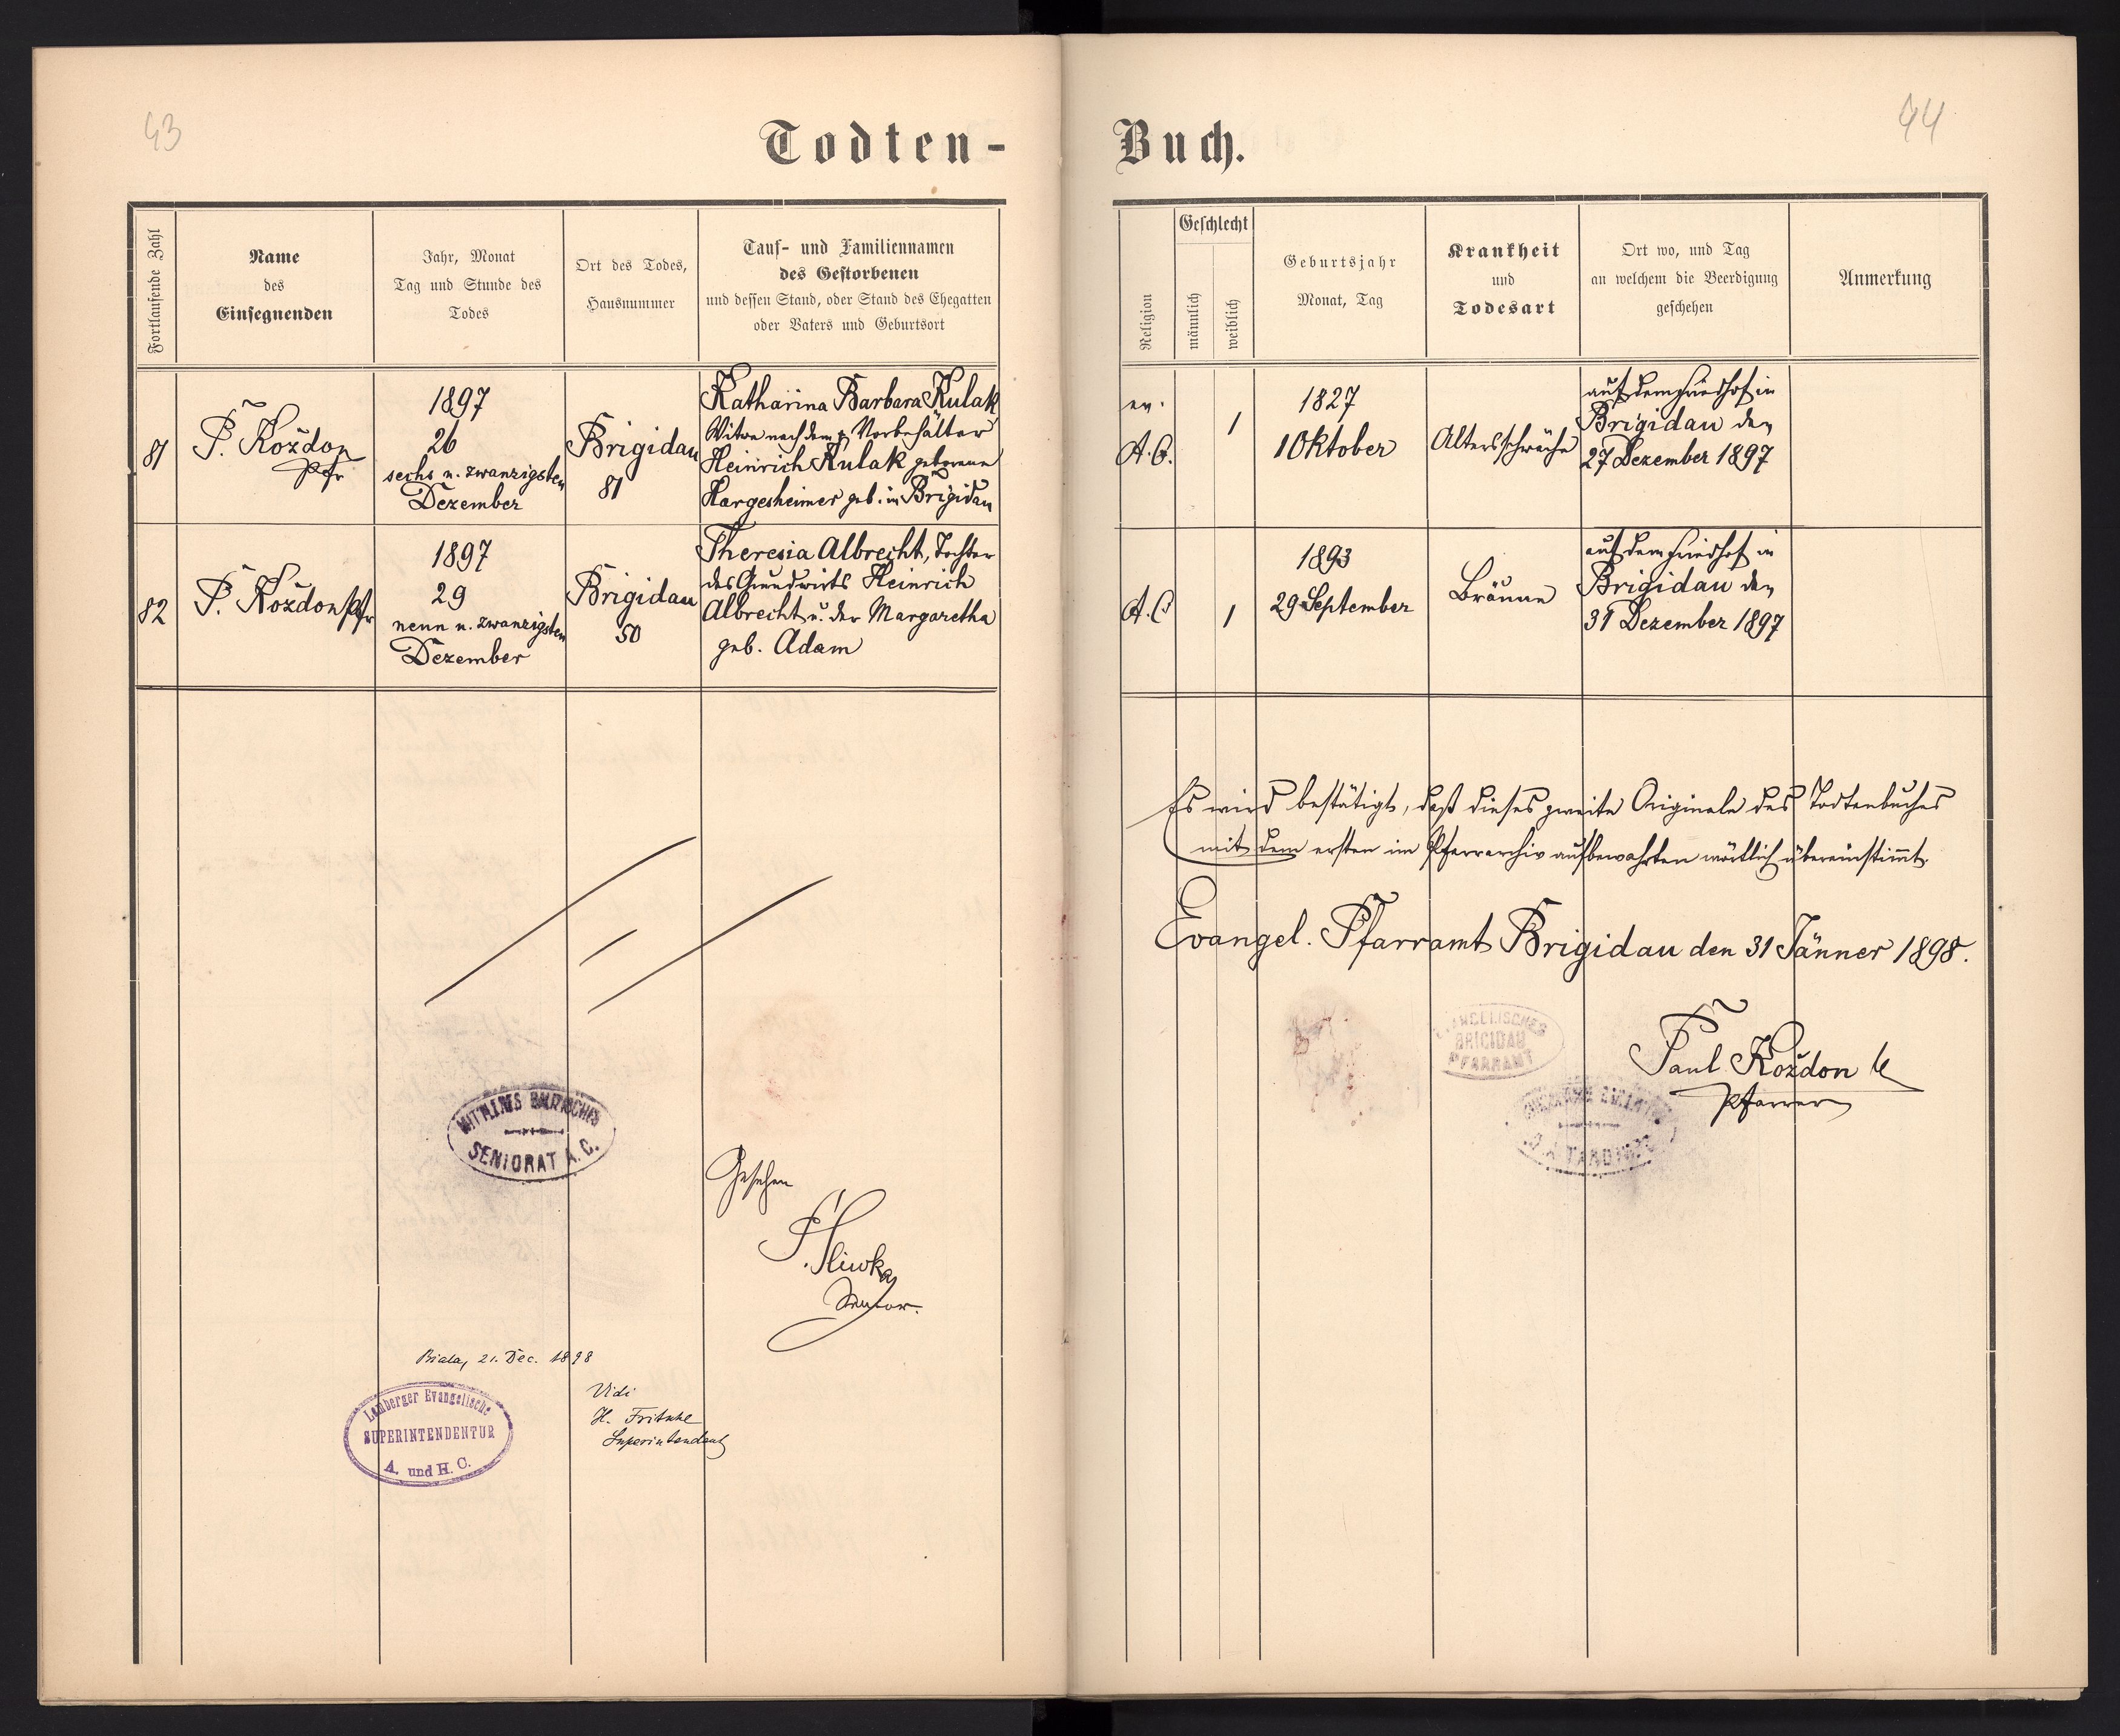 43
Todten-
Fortlaufende Zahl
Name
des
Einsegnenden
Jahr, Monat
Tag und Stunde des
Todes
Ort des Todes,
Hausnummer
Tauf- und Familiennamen
des Gestorbenen
und dessen Stand, oder Stand des Ehegatten
oder Vaters und Geburtsort
81
P. Koždon
Pfr
1897
26
sechs u. zwanzigsten
Dezember
Brigidau
81
Katharina Barbara Kulak
Witwe nach dem Vorbehälter
Heinrich Kulak geborene
Hargesheimer geb. in Brigidau
82
P. Koždon Pfr
1897
29
neun u. zwanzigsten
Dezember
Brigidau
50
Theresia Albrecht, Tochter
des Grundwirts Heinrich
Albrecht u. der Margaretha
geb. Adam
SENIORAT A. C.
Gesehen
Sliwka
Senior.
Biala, 21. Dec. 1898
Lemberger Evangelische
SUPERINTENDENTUR
A. und H. C.
Vidi
H. Fritsche
Superintendent
44
Buch.
Religion
Geschlecht
männlich
weiblich
Geburtsjahr
Monat, Tag
Krankheit
und
Todesart
Ort wo, und Tag
an welchem die Beerdigung
geschehen
Anmerkung
ev.
A.C.
1
1827
1 Oktober
Altersschwäche
auf dem Friedhof in
Brigidau den
27 Dezember 1897
A.C
1
1893
29 September
Bräune
auf dem Friedhof in
Brigidau den
31 Dezember 1897
Es wird bestätigt, daß dieses zweite Originale des Todtenbuches
mit dem ersten im Pfarrarchiv aufbewahrten wörtlich übereinstimmt.
Evangel. Pfarramt Brigidau den 31 Jänner 1898.
EVANGELISCHES
BRIGIDAU
PFARRAMT
Paul Koždon
Pfarrer